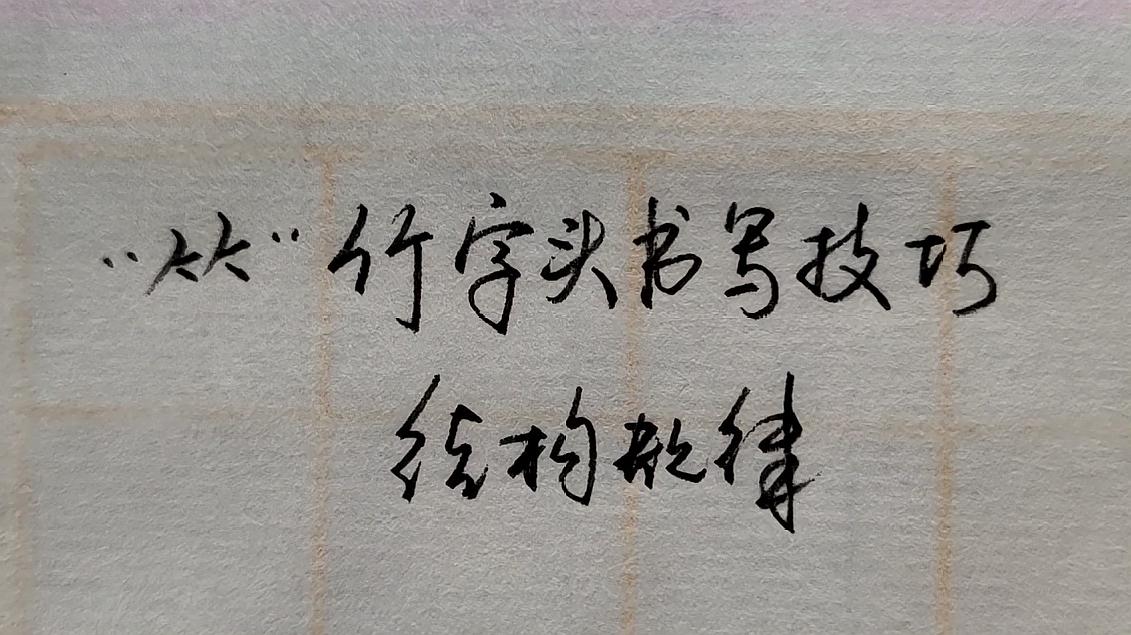 “⺮”竹字头书写技巧
结构规律